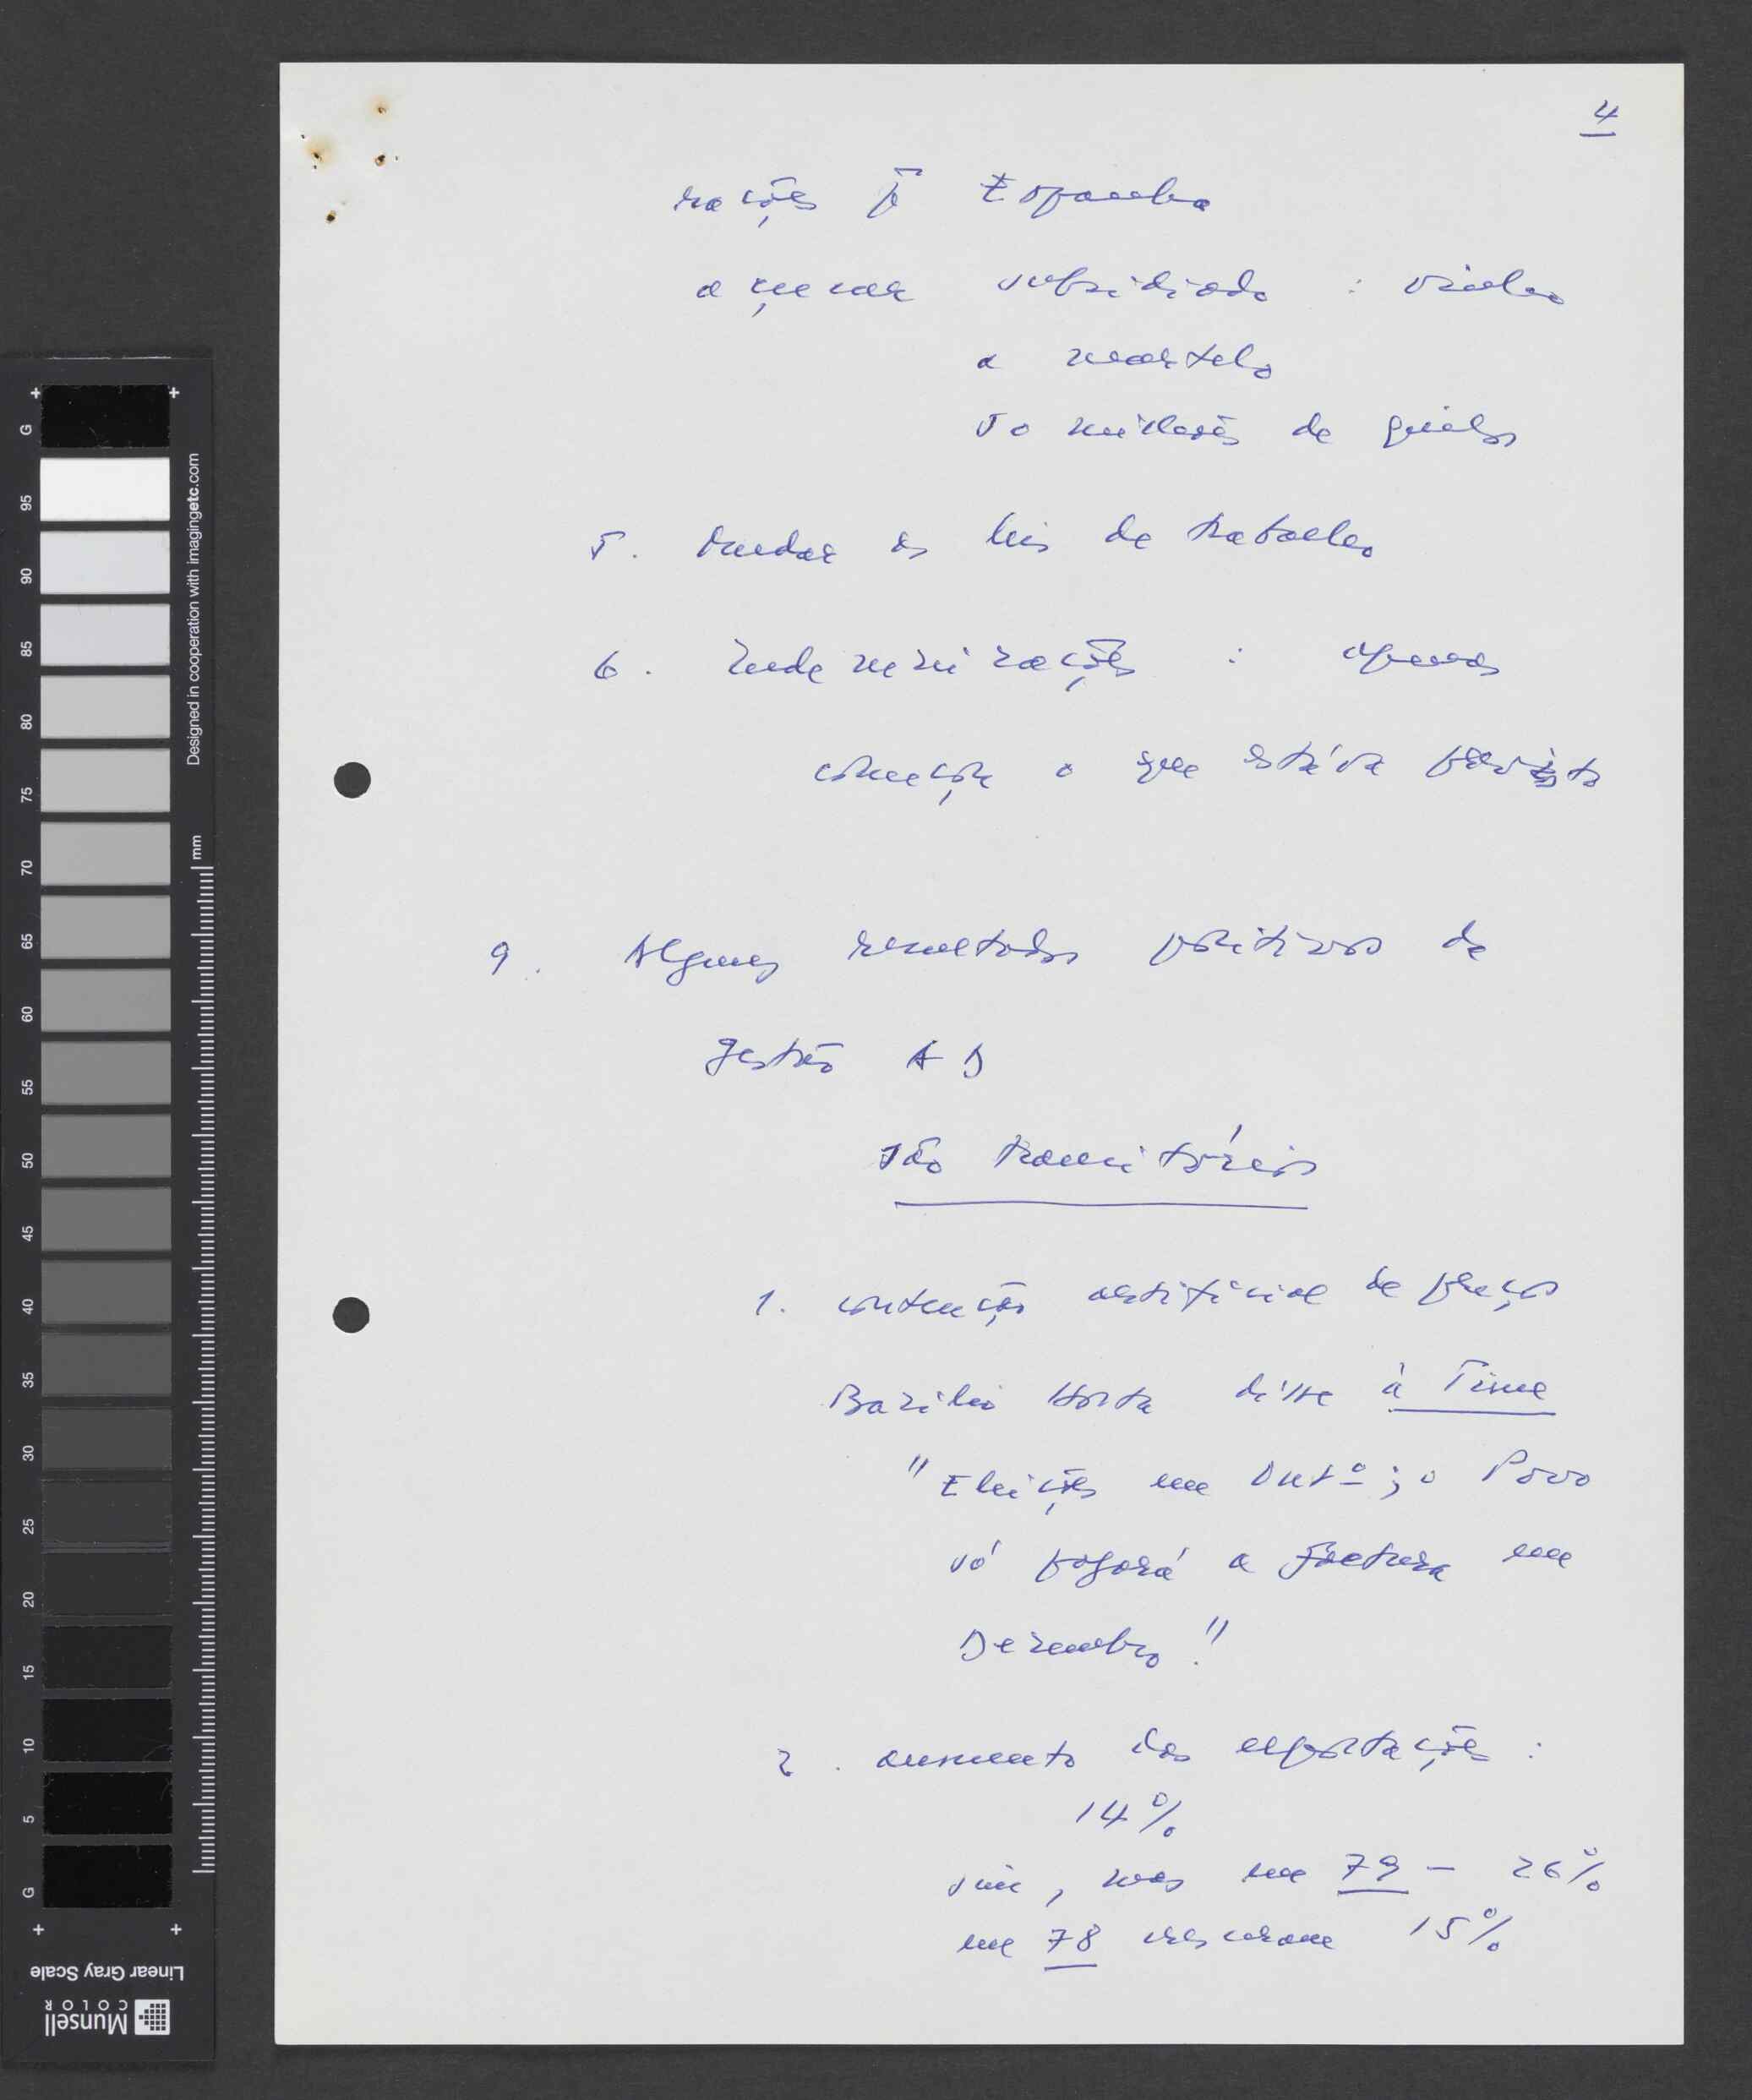 4
rações pª Espanha
açucar subsidiado : vinho
a martelo
50 milhões de quilos
5. Mudar as leis de trabalho
6. Indemnizações : apenas
começou o que estáva previsto
9. Alguns resultados positivos da
gestão AD
São transitórios
1. contenção artificial de preços
Bazilio Horta disse à Time
"Eleições em Outº ; o Povo
só pagará a factura em
Dezembro!"
2. aumento das exportações :
14%
sim, mas em 79 - 26%
em 78 cresceram 15%
G
95
90
85
80
75
70
65
60
55
50
45
40
35
30
25
20
15
10
5
G
mm
Designed in cooperation with imagingetc.com
Linear Gray Scale
Munsell
COLOR